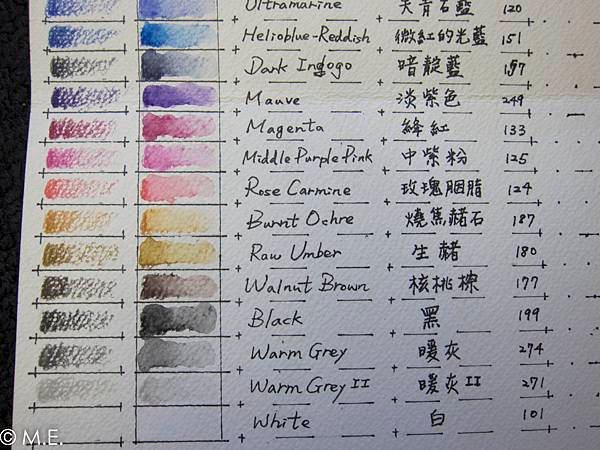 Ultramarine 天青石藍 120
Helioblue-Reddish 微紅的光藍 151
Dark Indogo 暗靛藍 157
Mauve 淡紫色 249
Magenta 絳紅 133
Middle Purple Pink 中紫粉 125
Rose Carmine 玫瑰胭脂 124
Burnt Ochre 燒焦赭石 187
Raw Umber 生赭 180
Walnut Brown 核桃棕 177
Black 黑 199
Warm Grey 暖灰 274
Warm Grey II 暖灰II 271
White 白 101
© M.E.